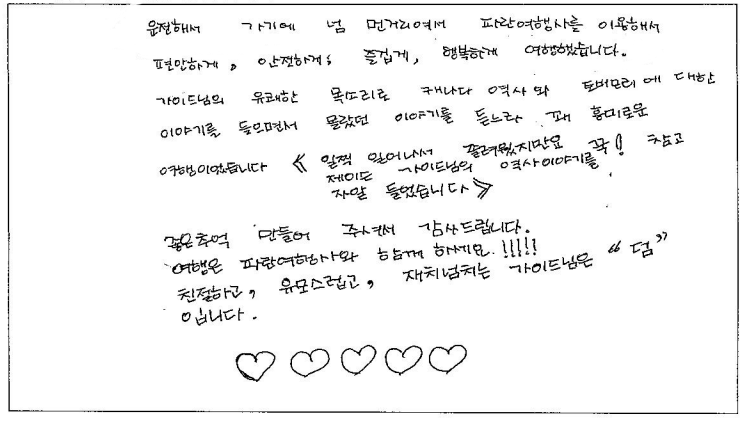 운전해서 가기에 넘 먼거리여서 파란여행사를 이용해서
편안하게, 안전하게, 즐겁게, 행복하게 여행했습니다.
가이드님의 유쾌한 목소리로 캐나다 역사와 토버모리에 대한
이야기를 들으면서 몰랐던 이야기를 듣느라 꽤 흥미로운
여행이었습니다 《 일찍 일어나서 졸려웠지만요 꾹! 참고
제이드 가이드님의 역사이야기를
자알 들었습니다 》
좋은추억 만들어 주셔서 감사드립니다.
여행은 파란여행사와 함께 하세요!!!!!
친절하고, 유모스럽고, 재치넘치는 가이드님은 “덤”
입니다.